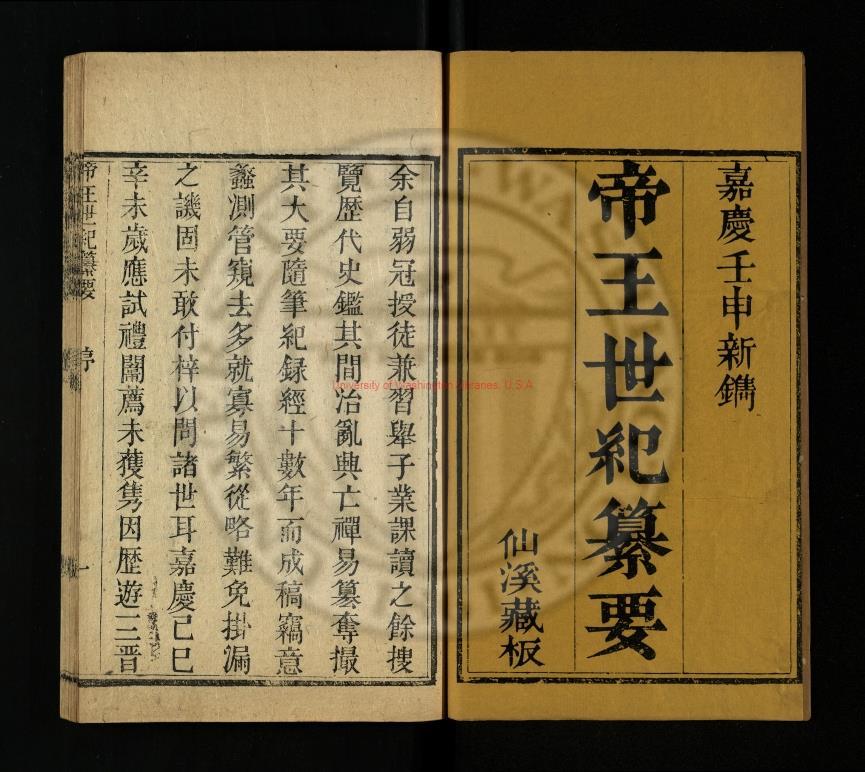 嘉慶壬申新鐫
帝王世紀纂要
仙溪藏板
余自弱冠授徒兼習舉子業課讀之餘搜
覽歷代史鑑其間治亂興亡禪易簒奪撮
其大要隨筆紀録經十數年而成稿竊意
蠡測管窺去多就寡易繁從略難免掛漏
之譏固未敢付梓以問諸世耳嘉慶己巳
辛未歲應試禮闈薦未獲雋因歷遊三晋
帝王世紀纂要 序 一
University of Washington Libraries, U.S.A